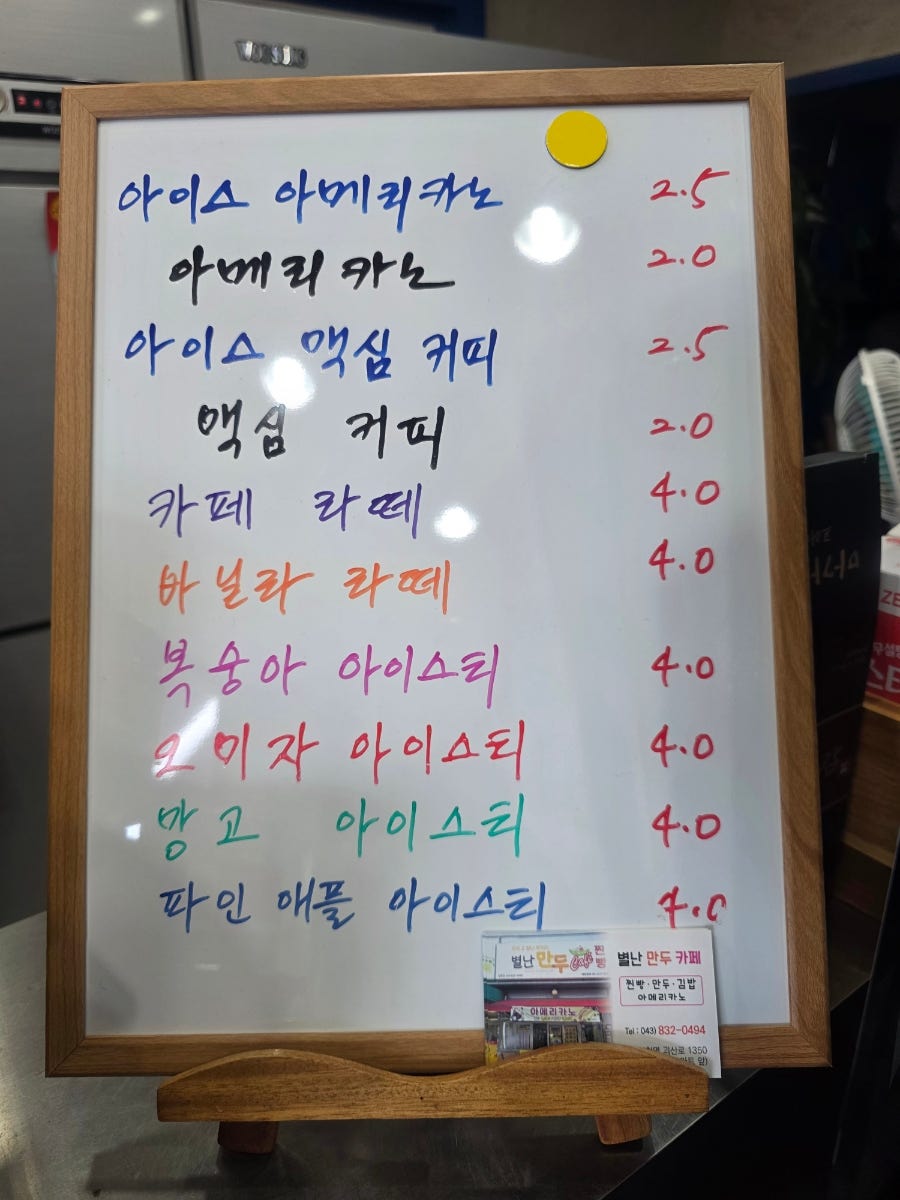 아이스 아메리카노 2.5
아메리카노 2.0
아이스 맥심 커피 2.5
맥심 커피 2.0
카페 라떼 4.0
바닐라 라떼 4.0
복숭아 아이스티 4.0
오미자 아이스티 4.0
망고 아이스티 4.0
파인애플 아이스티 4.0
별난 만두
아메리카노
별난 만두 카페
찐빵·만두·김밥
아메리카노
Tel : 043) 832-0494
괴산로 1350
앞)